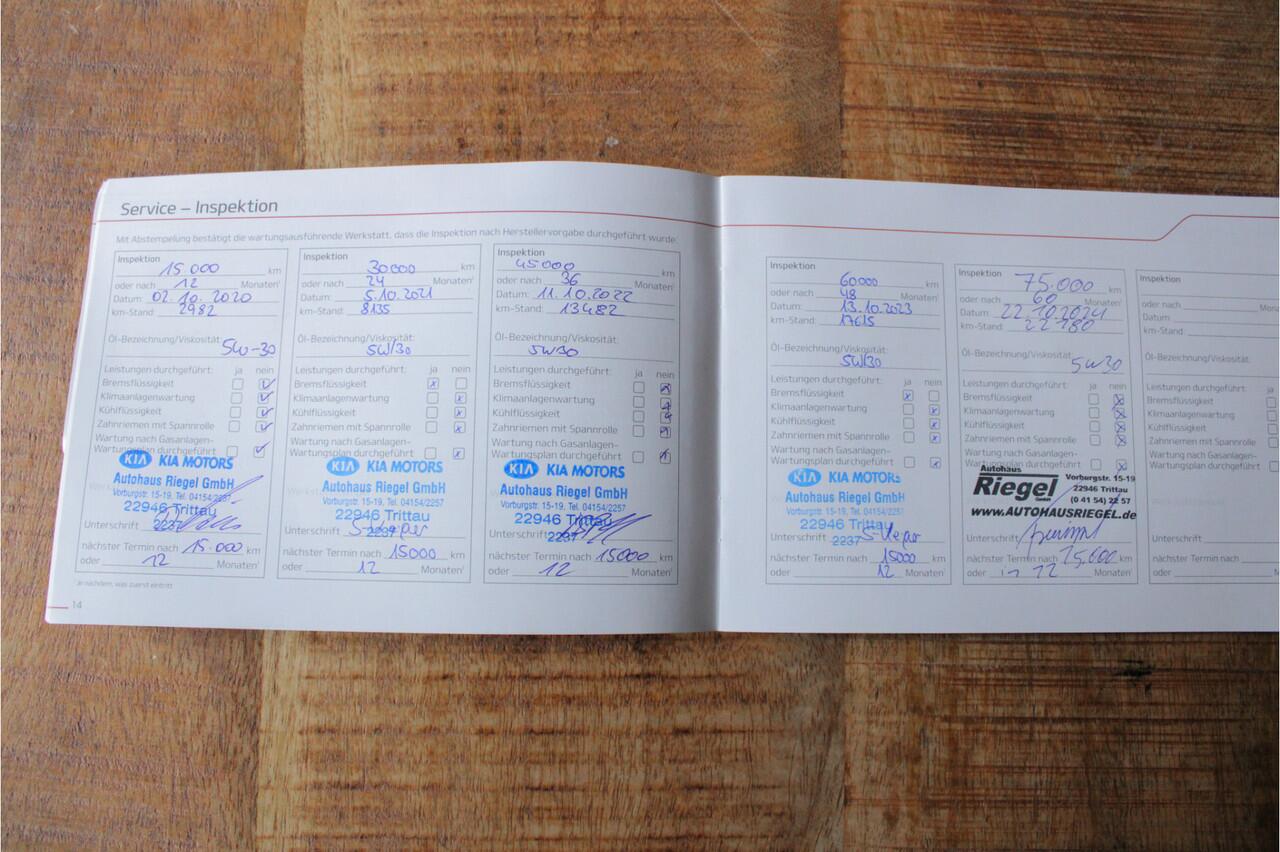 Service – Inspektion
Mit Abstempelung bestätigt die wartungsausführende Werkstatt, dass die Inspektion nach Herstellervorgabe durchgeführt wurde:
Inspektion
15.000 km
oder nach 12 Monaten¹
Datum: 02.10.2020
km-Stand: 2982
Öl-Bezeichnung/Viskosität:
5W-30
Leistungen durchgeführt: ja nein
Bremsflüssigkeit
Klimaanlagenwartung
Kühlflüssigkeit
Zahnriemen mit Spannrolle
Wartung nach Gasanlagen-
Wartungsplan durchgeführt
KIA KIA MOTORS
Autohaus Riegel GmbH
Vorburgstr. 15-19, Tel. 04154/2257
22946 Trittau
2237
Unterschrift
nächster Termin nach 15.000 km
oder 12 Monaten¹
Inspektion
30000 km
oder nach 24 Monaten¹
Datum: 5.10.2021
km-Stand: 8135
Öl-Bezeichnung/Viskosität:
5W/30
Leistungen durchgeführt: ja nein
Bremsflüssigkeit
Klimaanlagenwartung
Kühlflüssigkeit
Zahnriemen mit Spannrolle
Wartung nach Gasanlagen-
Wartungsplan durchgeführt
KIA KIA MOTORS
Autohaus Riegel GmbH
Vorburgstr. 15-19, Tel. 04154/2257
22946 Trittau
2237
Unterschrift
nächster Termin nach 15000 km
oder 12 Monaten¹
Inspektion
45000 km
oder nach 36 Monaten¹
Datum: 11.10.2022
km-Stand: 13482
Öl-Bezeichnung/Viskosität:
5W30
Leistungen durchgeführt: ja nein
Bremsflüssigkeit
Klimaanlagenwartung
Kühlflüssigkeit
Zahnriemen mit Spannrolle
Wartung nach Gasanlagen-
Wartungsplan durchgeführt
KIA KIA MOTORS
Autohaus Riegel GmbH
Vorburgstr. 15-19, Tel. 04154/2257
22946 Trittau
2237
Unterschrift
nächster Termin nach 15000 km
oder 12 Monaten¹
¹ Je nachdem, was zuerst eintritt
14
Inspektion
60000 km
oder nach 48 Monaten¹
Datum: 13.10.2023
km-Stand: 17615
Öl-Bezeichnung/Viskosität:
5W/30
Leistungen durchgeführt: ja nein
Bremsflüssigkeit
Klimaanlagenwartung
Kühlflüssigkeit
Zahnriemen mit Spannrolle
Wartung nach Gasanlagen-
Wartungsplan durchgeführt
KIA KIA MOTORS
Autohaus Riegel GmbH
Vorburgstr. 15-19, Tel. 04154/2257
22946 Trittau
2237
Unterschrift
nächster Termin nach 15000 km
oder 12 Monaten¹
Inspektion
75.000 km
oder nach 60 Monaten¹
Datum: 22.10.2024
km-Stand: 22180
Öl-Bezeichnung/Viskosität:
5W30
Leistungen durchgeführt: ja nein
Bremsflüssigkeit
Klimaanlagenwartung
Kühlflüssigkeit
Zahnriemen mit Spannrolle
Wartung nach Gasanlagen-
Wartungsplan durchgeführt
Autohaus
Riegel GmbH
Vorburgstr. 15-19
22946 Trittau
(0 41 54) 22 57
www.AUTOHAUSRIEGEL.de
Unterschrift
nächster Termin nach 15.000 km
oder 12 Monaten¹
Inspektion
oder nach Mona
Datum:
km-Stand:
Öl-Bezeichnung/Viskosität:
Leistungen durchgeführt: ja
Bremsflüssigkeit
Klimaanlagenwartung
Kühlflüssigkeit
Zahnriemen mit Spannrolle
Wartung nach Gasanlagen-
Wartungsplan durchgeführt
Unterschrift
nächster Termin nach
oder Mon